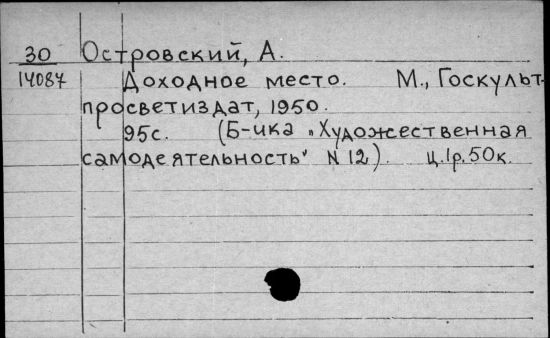 30 Островский, А.
14087 Доходное место. М., Госкульт-
просветиздат, 1950.
95с. (Б-ика „Художественная
самодеятельность" N 12). ц.1р.50к.